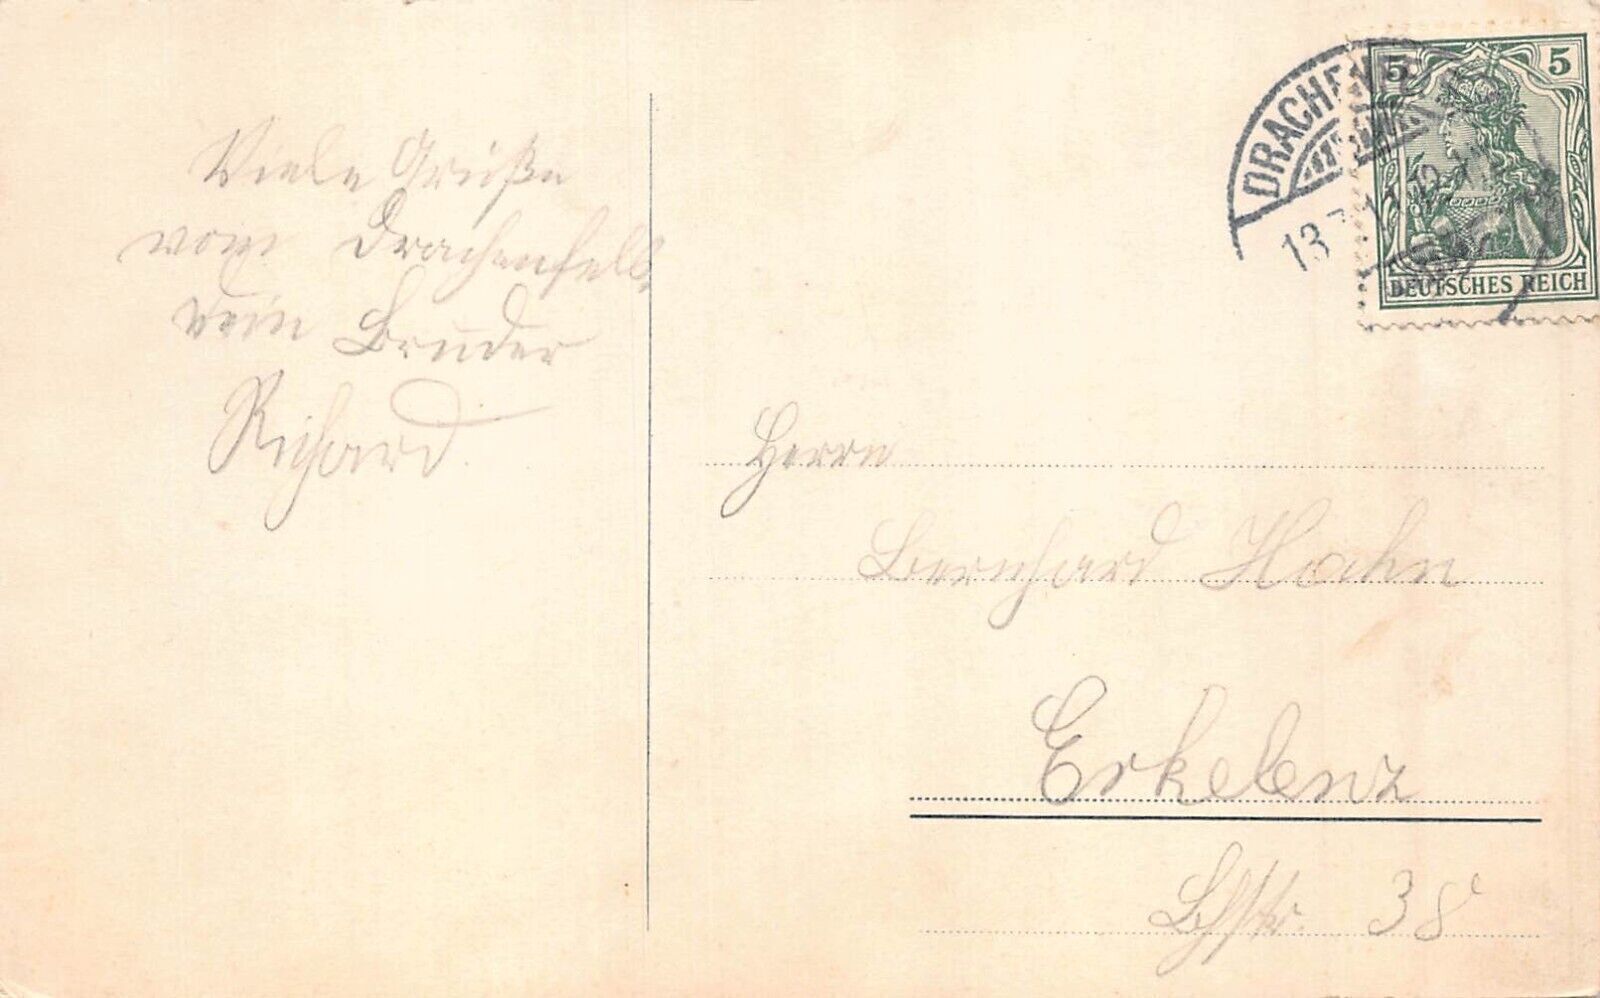 Viele Grüße
vom Drachenfels
Dein Bruder
Richard.
DRACHENF
13.7.11 12
5 5
DEUTSCHES REICH
Herrn
Bernhard Hahn
Erkelenz
38